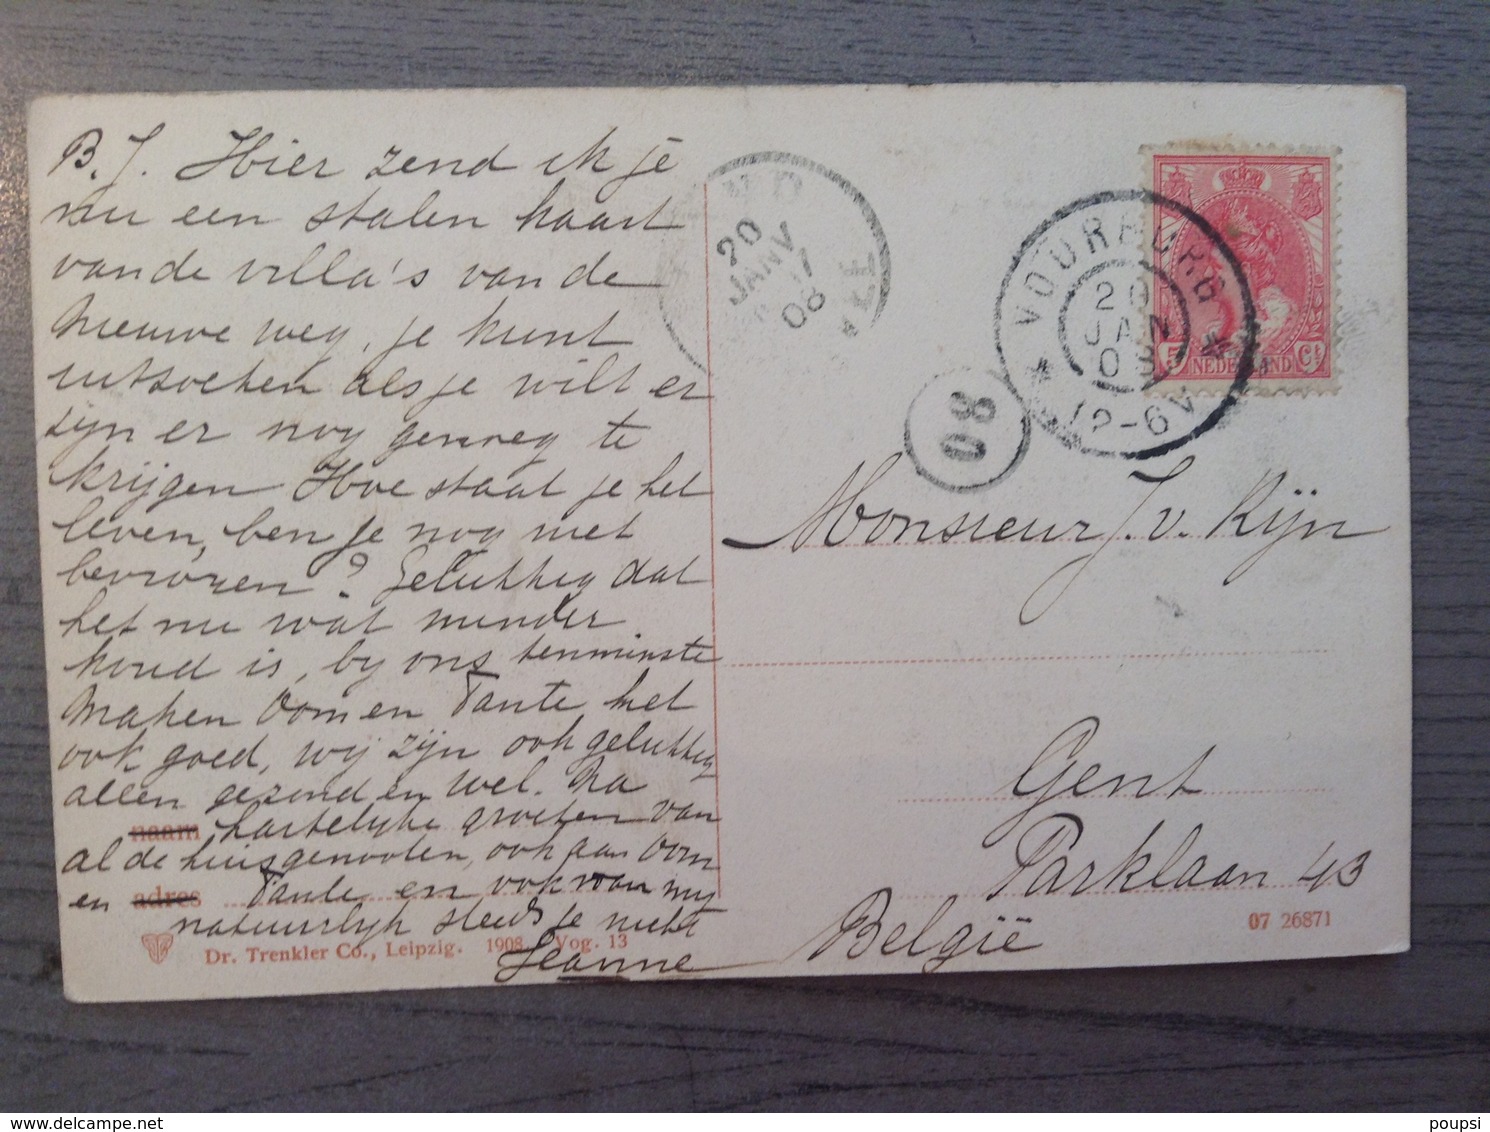 B. J. Hier zend ik je
nu een stalen kaart
van de villa's van de
Nieuwe weg, je kunt
uitzoeken als je wilt er
zijn er nog genoeg te
krijgen Hoe staat je het
leven, ben je nog niet
bevrozen? Gelukkig dat
het nu wat minder
koud is, by ons tenminste
Maken Oom en Tante het
ook goed, wij zijn ook gelukkig
allen gezond en wel. Na
naam hartelijke groeten van
al de huisgenooten, ook aan Oom
en adres Tante en ook van mij
natuurlijk steeds je nicht
Jeanne
Dr. Trenkler Co., Leipzig. 1908. Vog. 13
20
JANV
08
08
VOORBURG
20
JAN
08
12-6 V
5 NEDERLAND Ct
Monsieur J. v. Rijn
Gent
Parklaan 43
België
07 26871
poupsi